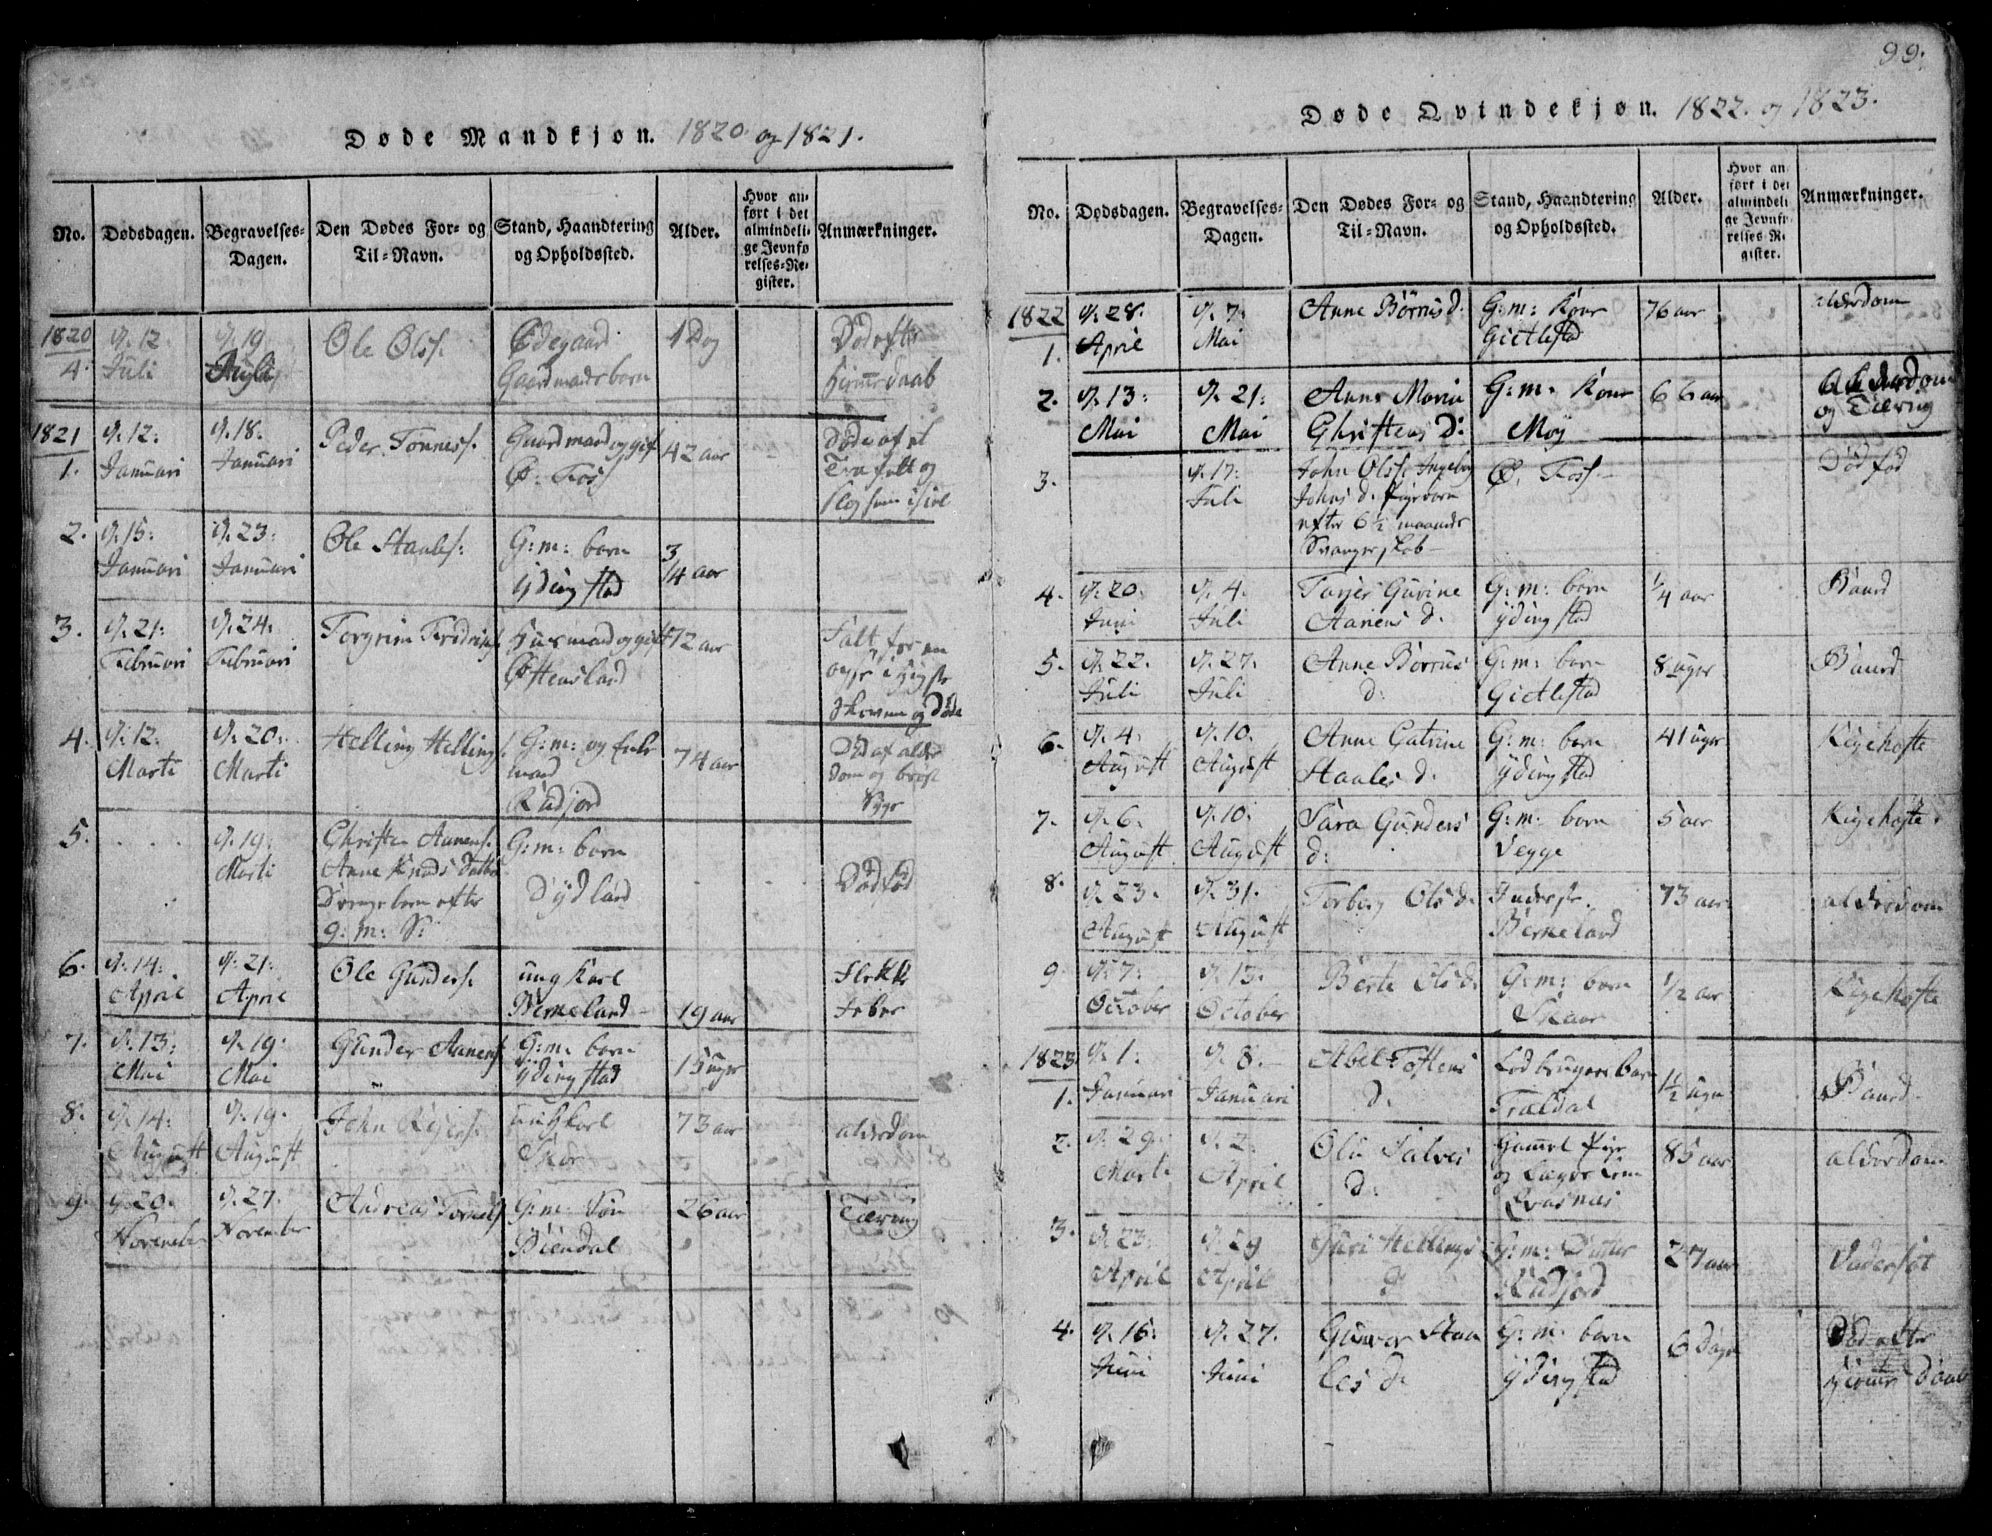 Døde Mandkjøn. 1820 og 1821.
No.
Dødsdagen.
Begravelses-
Dagen.
Den Dødes For- og
Til-Navn.
Stand, Haandtering
og Opholdssted.
Alder.
Hvor an-
ført i det
almindeli-
ge Jevnfø
relses-Re-
gister.
Anmærkninger.
1820
4.
d. 12.
Juli
d. 19
Juli
Ole Ols.
Ødegaard
Gaardmands barn
1 Dog
Død efter
Hjemedaab
1821
1.
d. 12.
Januari
d. 18.
Januari
Peder Tønness.
Gaardmand og gift
Ø. Foss
42 aar
Døde af et
Træ falt og
slog ham
2.
d. 15.
Januari
d. 23.
Januari
Ole Staales.
G: m: barn
Ydingstad
3/4 aar
3.
d. 21.
Februari
d. 24.
Februari
Torgrim
Husmand og gift
Østensland
72 aar
Falt for en
og Døde
4.
d. 12.
Marti
d. 20.
Marti
Helling Hellings.
G: m: og Enke
mand
Rudjord
74 aar
Død af alder
dom og bryst
Syge
5.
d. 19.
Marti
Christen Aanens.
Anne Knuds Datter
Drengebarn efter
9: m: S:
G: m: barn
Dydland
Dødfød
6.
d. 14.
April
d. 21.
April
Ole Gunders.
ung karl
Birkeland
19 aar
Flekk
Feber
7.
d. 13.
Mai
d. 19.
Mai
Gunder Aanens.
G: m: barn
Ydingstad
15 uger
8.
d. 14.
August
d. 19.
August
John
ungkarl
73 aar
alderdom
9.
d. 20.
November
d. 27.
November
Andreas
G: m: Søn
26 aar
Tæring
99.
Døde Qvindekjøn. 1822. og 1823.
No.
Dødsdagen.
Begravelses-
Dagen.
Den Dødes For- og
Til-Navn.
Stand, Haandtering
og Opholdssted.
Alder.
Hvor an
ført i det
almindeli
ge Jevnfø
relses-R
gister.
Anmærkninger.
1822
1.
d. 28.
April
d. 7.
Mai
Anne Børrusd.
G: m: Kone
Gietlestad
76 aar
alderdom
2.
d. 13.
Mai
d. 21.
Mai
Anne Maria
Christens D:
G: m: Kone
Moy
66 aar
alderdom
og Tæring
3.
d. 17.
Juli
John Olss. Ingebor
Johns d. Pigebarn
efter 6½ maaneds
Svangerskab
Ø. Foss.
Død fød
4.
d. 20.
Juni
d. 4.
Juli
Tarjer Gurine
Aanens d.
G: m: barn
Ydingstad
1/4 aar
5.
d. 22.
Juli
d. 27.
Juli
Anne Børrus
d:
G: m: barn
Gietlestad
8 uger
6.
d. 4.
August
d. 10.
August
Anne Catrine
Staales d.
G: m: barn
Ydingstad
41 uger
Kigehoste
7.
d. 6.
August
d. 10.
August
Sara Gunders
d:
G: m: barn
Vegge
5 aar
Kigehoste
8.
d. 23.
August
d. 31.
August
Torborg Olsd.
Birkeland
73 aar
alderdom
9.
d. 7.
October
d. 13.
October
Berte Olsd.
G: m: barn
Skaar
1/2 aar
Kigehoste
1823
1.
d. 1.
Januari
d. 8.
Januari
Abel Toftens
d.
Trældal
1½ uge
2.
d. 29.
Marti
d. 2.
April
Oli Salves
d:
Gammel Pige
og Lægdslem
85 aar
alderdom
3.
d. 23.
April
d. 29
April
Guri Hellings
d
G: m: Datter
Rudjord
27 aar
Vadersot
4.
d. 16.
Juni
d. 27.
Juni
Gunvor Staa
les d.
G: m: barn
Ydingstad
6 Dage
Død efter
Hjemedaab